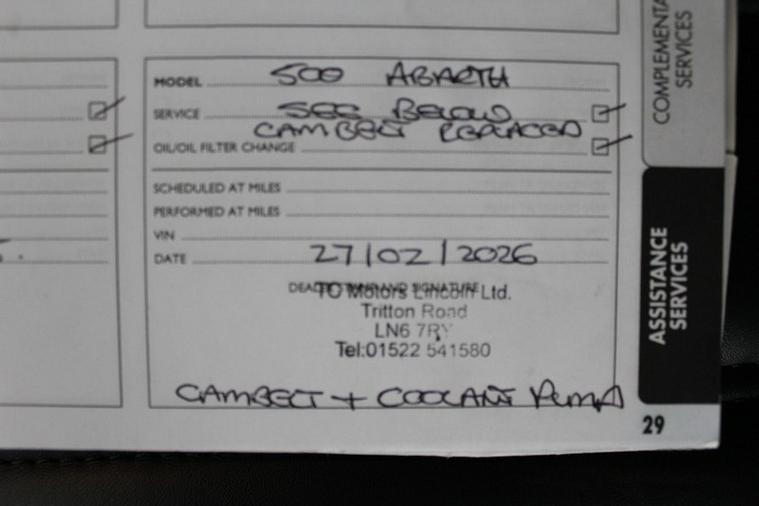 MODEL 500 ABARTH
SERVICE SEE BELOW
CAMBELT REPLACED
OIL/OIL FILTER CHANGE
SCHEDULED AT MILES
PERFORMED AT MILES
VIN
DATE 27/02/2026
DEALER STAMP AND SIGNATURE
TC Motors Lincoln Ltd.
Tritton Road
LN6 7RY
Tel:01522 541580
CAMBELT + COOLANT PUMP
COMPLEMENTA
SERVICES
ASSISTANCE
SERVICES
29